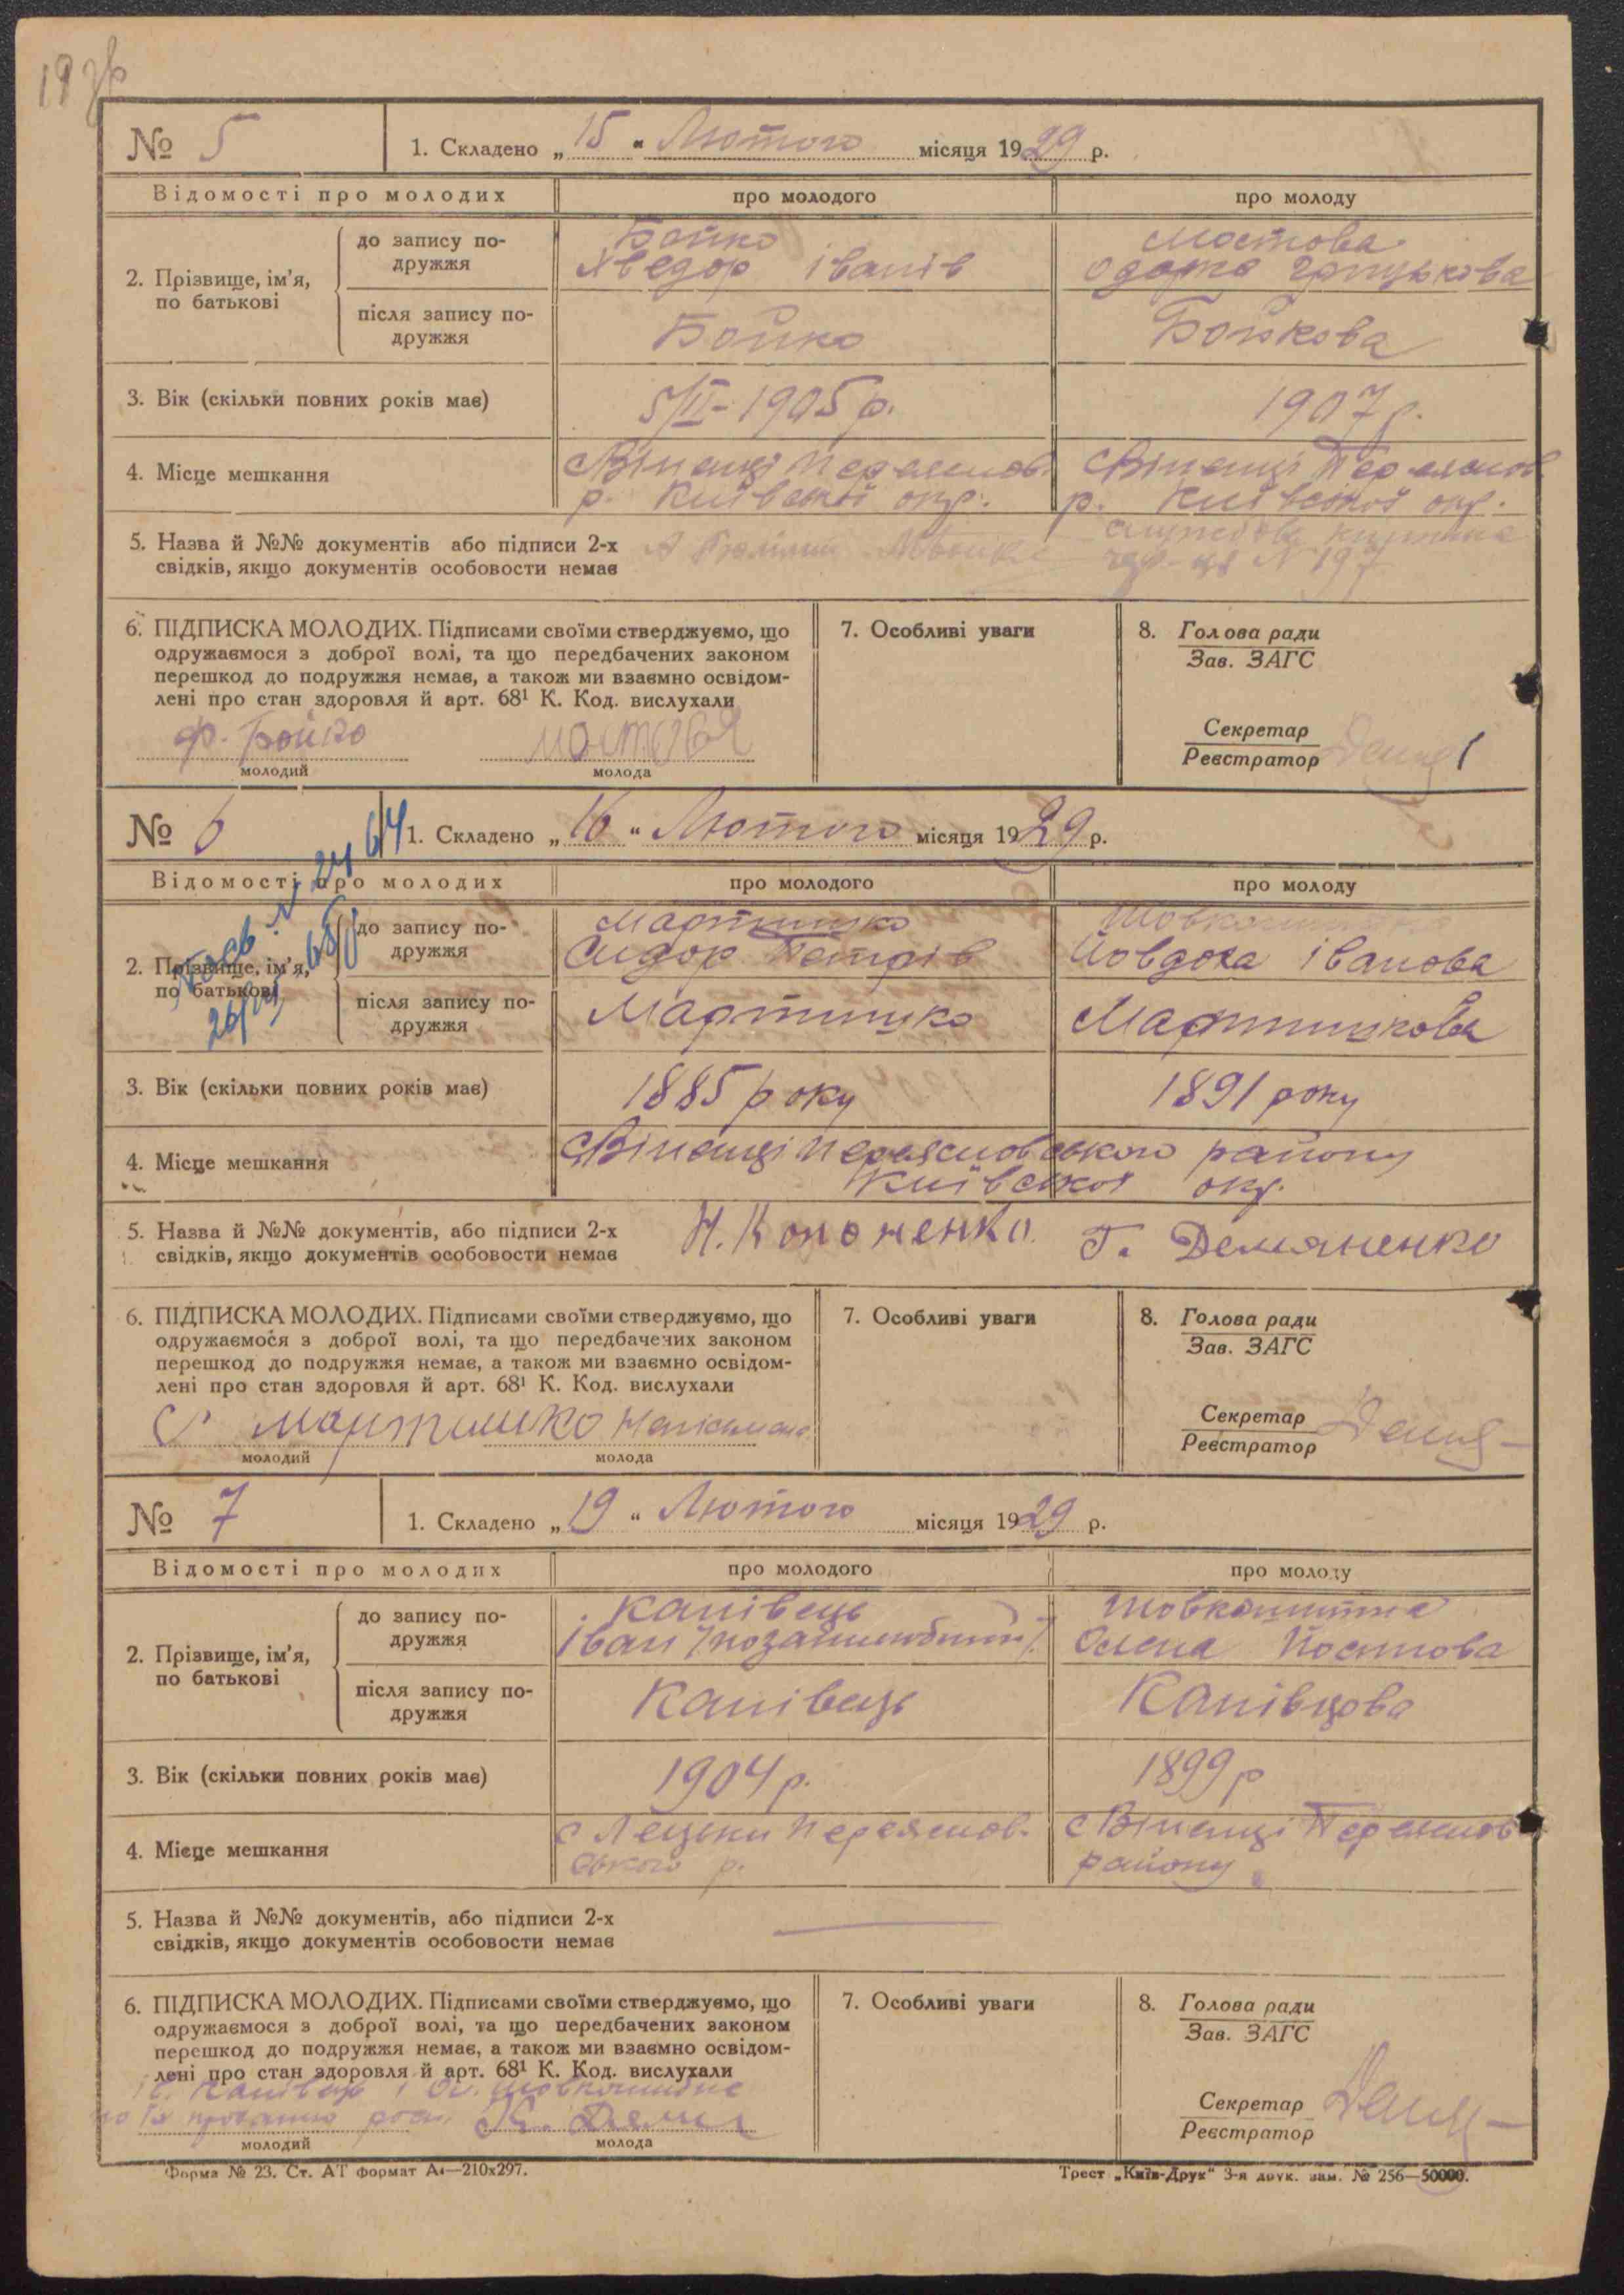 19 зв
№ 5
1. Складено „15“ Лютого місяця 1929 р.
Відомості про молодих
про молодого
про молоду
2. Прізвище, ім'я, по батькові
до запису подружжя
Бойко
Хведор Іванів
Мостова
Одарка Грицькова
після запису подружжя
Бойко
Бойкова
3. Вік (скільки повних років має)
5/II-1905 р.
1907 р.
4. Місце мешкання
с Віненці Переяслов.
р. Київської окр.
с Віненці Переяслов
р. Київської окр.
5. Назва й №№ документів або підписи 2-х
свідків, якщо документів особовости немає
№ 197
6. ПІДПИСКА МОЛОДИХ. Підписами своїми стверджуємо, що
одружаємося з доброї волі, та що передбачених законом
перешкод до подружжя немає, а також ми взаємно освідом-
лені про стан здоровля й арт. 68¹ К. Код. вислухали
ф. Бойко
мостовая
молодий
молода
7. Особливі уваги
8. Голова ради
Зав. ЗАГС
Секретар
Реєстратор
№ 6
1. Складено „16“ Лютого місяця 1929 р.
Відомості про молодих
про молодого
про молоду
2. Прізвище, ім'я, по батькові
до запису подружжя
Мартишко
Сидор Петрів
Йовдоха Іванова
після запису подружжя
Мартишко
Мартишкова
3. Вік (скільки повних років має)
1885 року
1891 року
4. Місце мешкання
с Віненці Переясловського району
Київської окр.
5. Назва й №№ документів, або підписи 2-х
свідків, якщо документів особовости немає
Н. Кононенко. Г. Демяненко
6. ПІДПИСКА МОЛОДИХ. Підписами своїми стверджуємо, що
одружаємося з доброї волі, та що передбачених законом
перешкод до подружжя немає, а також ми взаємно освідом-
лені про стан здоровля й арт. 68¹ К. Код. вислухали
С Мартишко
молодий
молода
7. Особливі уваги
8. Голова ради
Зав. ЗАГС
Секретар
Реєстратор
№ 7
1. Складено „19“ Лютого місяця 1929 р.
Відомості про молодих
про молодого
про молоду
2. Прізвище, ім'я, по батькові
до запису подружжя
Канівець
Іван /позашлюбний/
Шовкошитна
Олена Йостова
після запису подружжя
Канівець
Канівцова
3. Вік (скільки повних років має)
1904 р.
1899 р
4. Місце мешкання
с Лецьки Переяслов-
ського р.
с Віненці Переяслов
району
5. Назва й №№ документів, або підписи 2-х
свідків, якщо документів особовости немає
6. ПІДПИСКА МОЛОДИХ. Підписами своїми стверджуємо, що
одружаємося з доброї волі, та що передбачених законом
перешкод до подружжя немає, а також ми взаємно освідом-
лені про стан здоровля й арт. 68¹ К. Код. вислухали
І. Канівець і Ол. Шовкошитна
по їх проханню розп.
молодий
молода
7. Особливі уваги
8. Голова ради
Зав. ЗАГС
Секретар
Реєстратор
Форма № 23. Ст. АТ формат А4—210х297.
Трест „Київ-Друк“ 3-я друк. зам. № 256—50000.